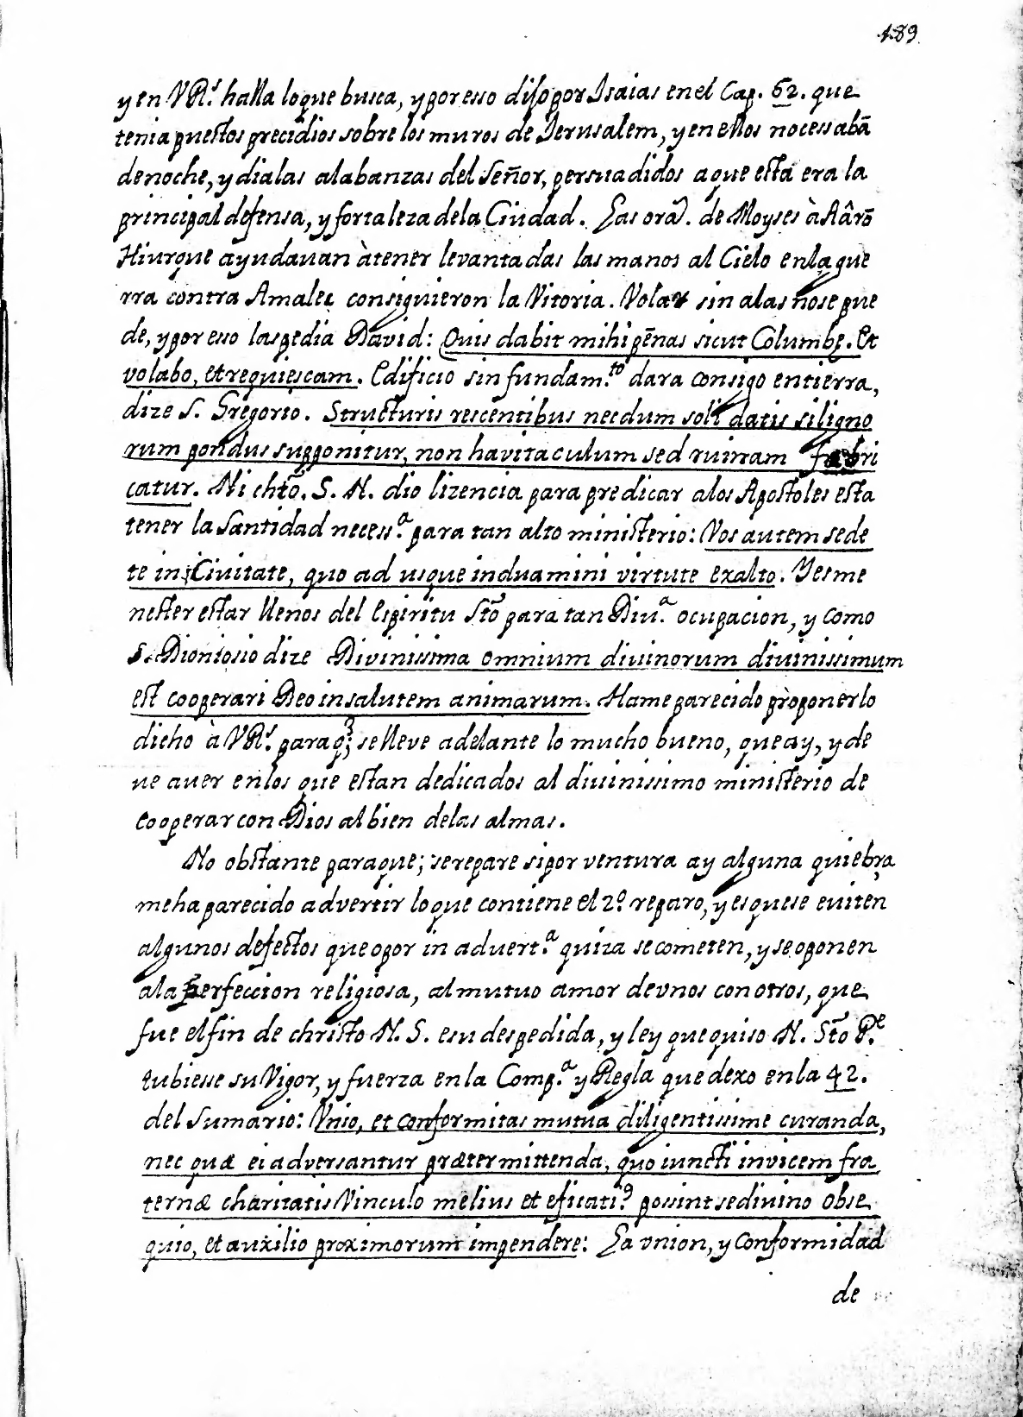 189.
y en VRs. halla lo que busca, y por esso diso por Isaias en el Cap. 62. que
tenia puestos precidios sobre los muros de Jerusalem, y en ellos no cessabā
de noche, y dia las alabanzas del Señor, persuadidos a que esta era la
principal defensa, y fortaleza de la Ciudad. Las orās. de Moyses à Aârō
Hiur que ayudauan à tener levantadas las manos al Cielo en la gue
rra contra Amalec consiguieron la Vitoria. Volar sin alas no se pue
de, y por esso las pedia David: Quis dabit mihi pēnas sicut Columbę. Et
volabo, et requiescam. Edificio sin fundam.to dara consigo en tierra,
dize S. Gregorio. Structuris rescentibus necdum soli datis si ligno
rum pondus supponitur, non havitaculum sed ruinam fabri
catur. Ni chtō. S. N. dio lizencia para predicar a los Apostoles esta
tener la Santidad necess.a para tan alto ministerio: Vos autem sede
te in Ciuitate, quo ad usque induamini virtute exalto. Y es me
nester estar llenos del Espiritu Stō para tan Diu.a ocupacion, y como
S. Dionisio dize Divinissima omnium diuinorum diuinissimum
est cooperari Deo in salutem animarum. Hame parecido proponer lo
dicho à VRs. para q̃; se lleve adelante lo mucho bueno, que ay, y de
ue auer en los que estan dedicados al diuinissimo ministerio de
cooperar con Dios al bien de las almas.
No obstante para que; se repare si por ventura ay alguna quiebra
me ha parecido advertir lo que contiene el 2º. reparo, y es que se euiten
algunos defectos que o por in aduert.a quiza se cometen, y se oponen
a la perfeccion religiosa, al mutuo amor de vnos con otros, que
fue el fin de christo N. S. e su despedida, y ley que quiso N. Stō P.e
tubiesse su Vigor, y fuerza en la Comp.a y Regla que dexo en la 42.
del Sumario: Vnio, et conformitas mutua diligentissime curanda,
nec quæ ei adversantur prætermittenda, quo iuncti invicem fra
ternæ charitatis Vinculo melius et eficati9 possint se diuino obse
quio, et auxilio proximorum impendere: La vnion, y Conformidad
de